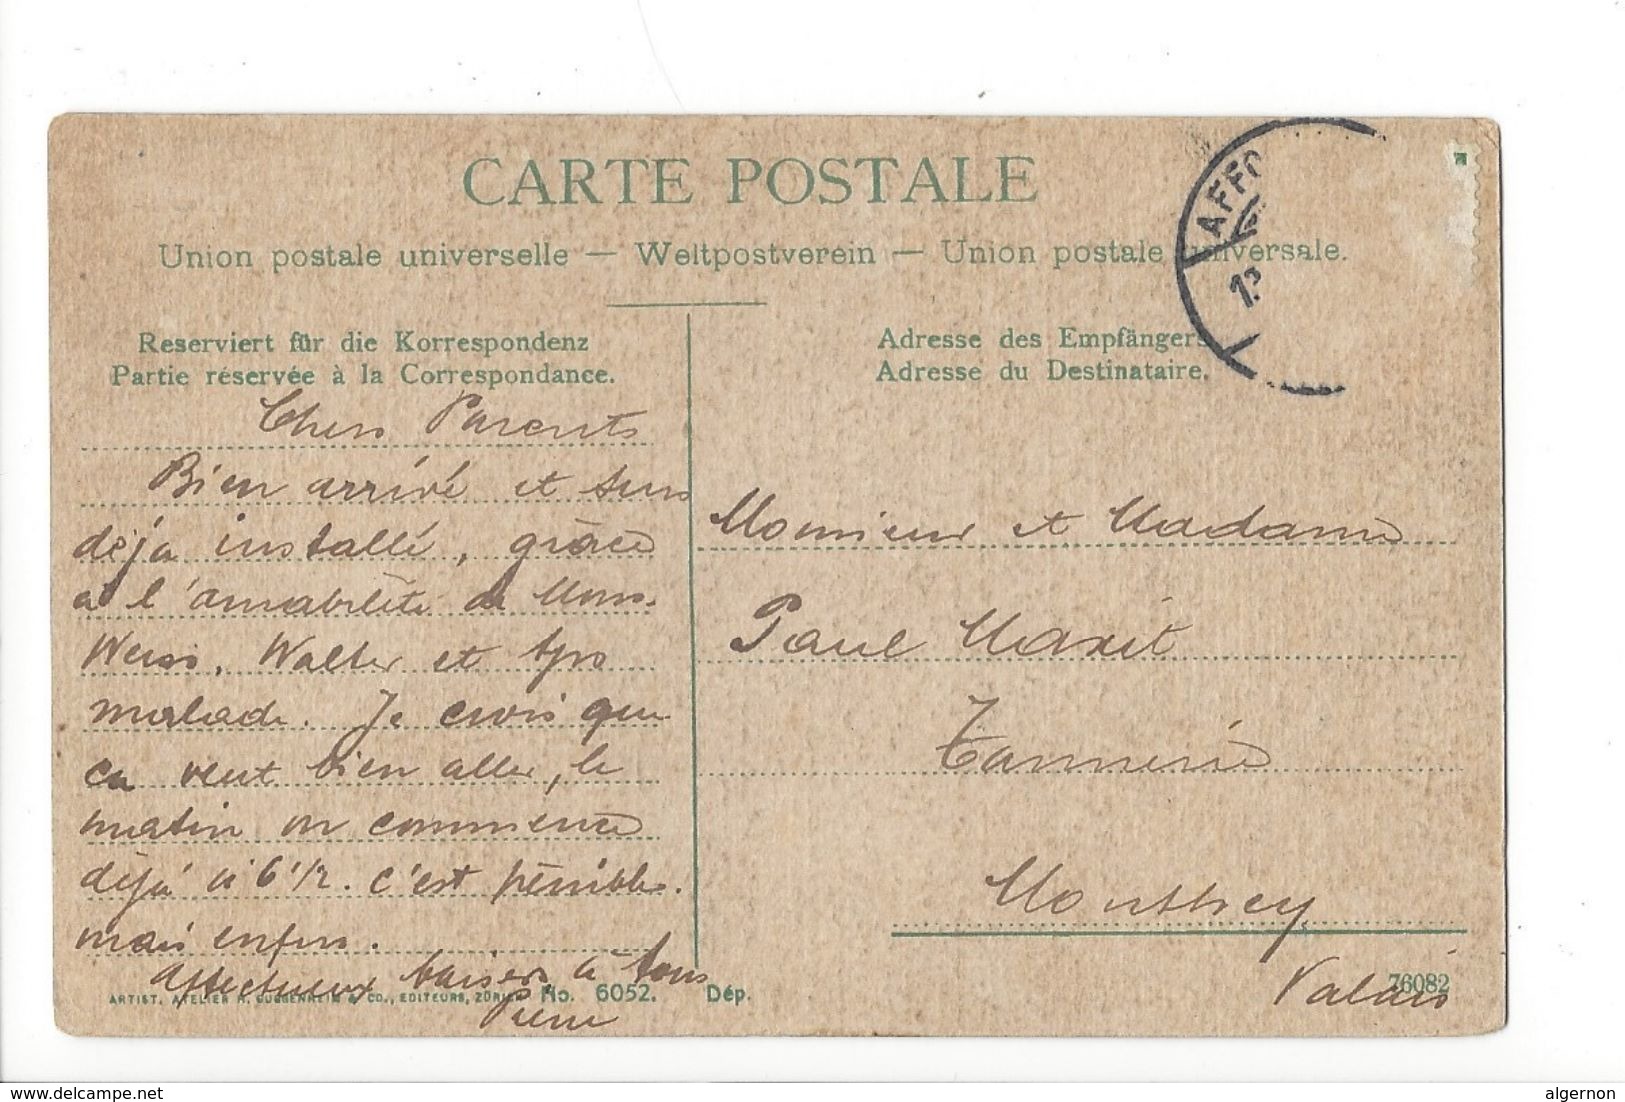 CARTE POSTALE
Union postale universelle — Weltpostverein — Union postale universale.
AFFO
13
Reserviert für die Korrespondenz
Partie réservée à la Correspondance.
Adresse des Empfängers
Adresse du Destinataire.
Chers Parents
Bien arrivé et suis
déjà installé, grâce
à l'amabilité de Mons.
Weiss. Walter et tjrs
malade. Je crois que
ça veut bien aller, le
matin on commence
déjà à 6 1/2. c'est pénible.
mais enfin.
Affectueux baisers à tous
Pierre
Monsieur et Madame
Paul Maxit
Tannerie
Monthey
Valais
ARTIST. ATELIER H. GUGGENHEIM & CO., EDITEURS, ZÜRICH No. 6052. Dép.
76082
delcampe.net
algernon